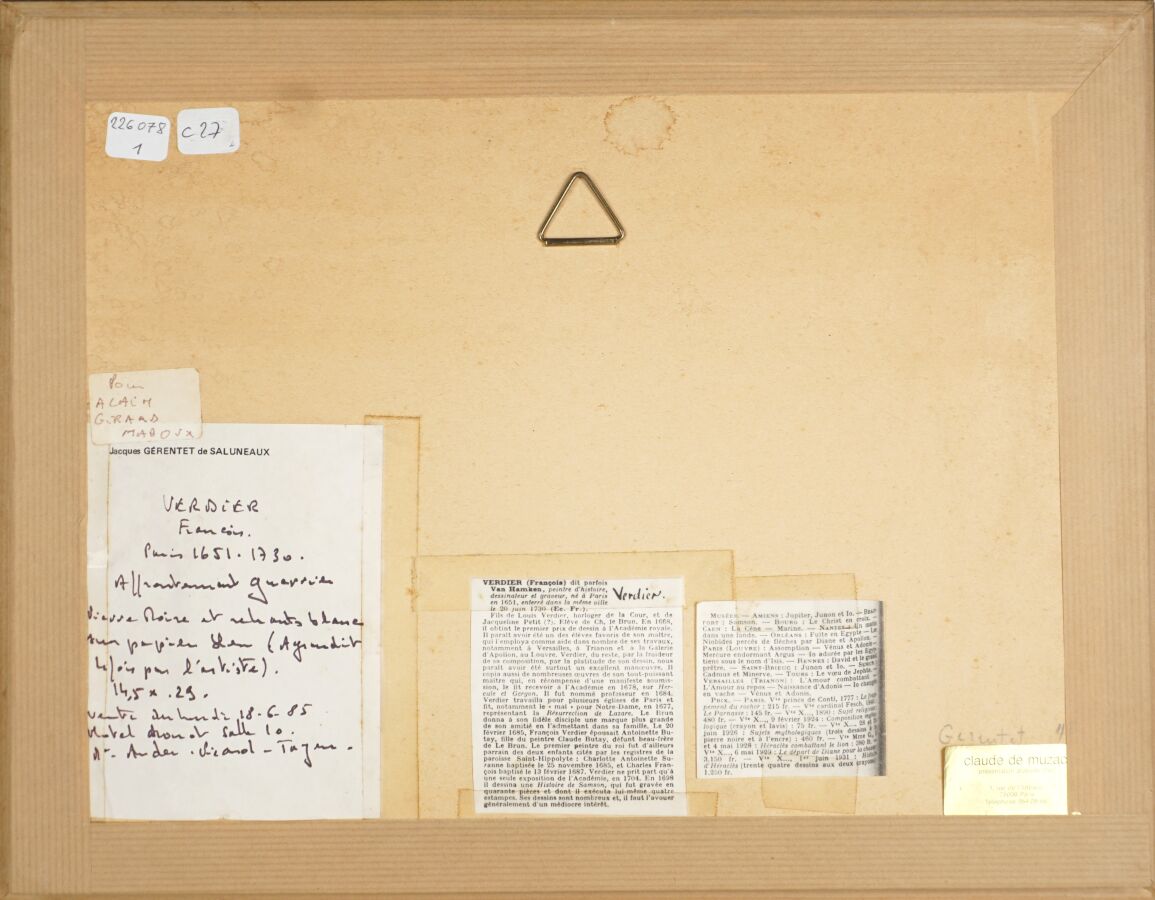 226078
1
C27
Pour
ALAIN
GIRARD
MADOUX
Jacques GÉRENTET de SALUNEAUX
VERDIER
François.
Paris 1651. 1730.
Affrontement guerrier
Pierre Noire et rehauts blancs
sur papier bleu (Agrandit
par l'artiste).
14,5 x 29.
Vente du lundi 18.6.85
Hotel Drouot Salle 10.
Ader. Picard. Tajan.
VERDIER (François) dit parfois
Van Hamken, peintre d'histoire,
dessinateur et graveur, né à Paris
en 1651, enterré dans la même ville
le 20 juin 1730 (Ec. Fr.).
Verdier.
Fils de Louis Verdier, horloger de la Cour, et de
Jacqueline Petit (?). Elève de Ch. le Brun. En 1668,
il obtint le premier prix de dessin à l'Académie royale.
Il paraît avoir été un des élèves favoris de son maître,
qui l'employa comme aide dans nombre de ses travaux,
notamment à Versailles, à Trianon et à la Galerie
d'Apollon, au Louvre. Verdier, du reste, par la froideur
de sa composition, par la platitude de son dessin, nous
paraît avoir été surtout un excellent manœuvre. Il
copia aussi de nombreuses œuvres de son tout-puissant
maître qui, en récompense d'une manifeste soumis-
sion, le fit recevoir à l'Académie en 1678, sur Her-
cule et Geryon. Il fut nommé professeur en 1684.
Verdier travailla pour plusieurs églises de Paris et
fit, notamment le « mai » pour Notre-Dame, en 1677,
représentant la Résurrection de Lazare. Le Brun
donna à son fidèle disciple une marque plus grande
de son amitié en l'admettant dans sa famille. Le 20
février 1685, François Verdier épousait Antoinette Bu-
tay, fille du peintre Claude Butay, défunt beau-frère
de Le Brun. Le premier peintre du roi fut d'ailleurs
parrain des deux enfants cités par les registres de la
paroisse Saint-Hippolyte : Charlotte Antoinette Su-
zanne baptisée le 25 novembre 1685, et Charles Fran-
çois baptisé le 13 février 1687. Verdier ne prit part qu'à
une seule exposition de l'Académie, en 1704. En 1698
il dessina une Histoire de Samson, qui fut gravée en
quarante pièces et dont il exécuta lui-même quatre
estampes. Ses dessins sont nombreux et, il faut l'avouer
généralement d'un médiocre intérêt.
MUSÉES. — AMIENS : Jupiter, Junon et Io. — BEAU-
FORT : Samson. — BOURG : Le Christ en croix. —
CAEN : La Cène — Marine. — NANTES : Un moine
dans une lande. — ORLÉANS : Fuite en Egypte — Les
Niobides percés de flèches par Diane et Apollon. —
PARIS (LOUVRE) : Assomption — Vénus et Adonis —
Mercure endormant Argus — Io adorée par les Egyp-
tiens sous le nom d'Isis. — RENNES : David et le grand
prêtre. — SAINT-BRIEUC : Junon et Io. —
Cadmus et Minerve. — TOURS : Le vœu de Jephté. —
VERSAILLES (TRIANON) : L'Amour combattant —
L'Amour au repos — Naissance d'Adonis — Io changée
en vache — Vénus et Adonis.
PRIX. — PARIS. Vte prince de Conti, 1777 : Le frap-
pement du rocher : 215 fr. — Vte cardinal Fesch, 1845 :
Le Parnasse : 145 fr. — Vte X..., 1890 : Sujet
logique (crayon et lavis) : 75 fr. — Vte X..., 28
480 fr. — Vte X..., 9 février 1924 : Composition
juin 1926 : Sujets mythologiques (trois dessins
pierre noire et à l'encre) : 460 fr. — Vte Mme
et 4 mai 1928 : Héraclès combattant le lion : 380 fr.
Vte X..., 6 mai 1929 : Le départ de Diane pour la chasse
3.150 fr. — Vte X..., 1er juin 1931 :
d'Héraclès (trente quatre dessins aux deux crayons)
1.250 fr.
Gerentet
claude de muzac